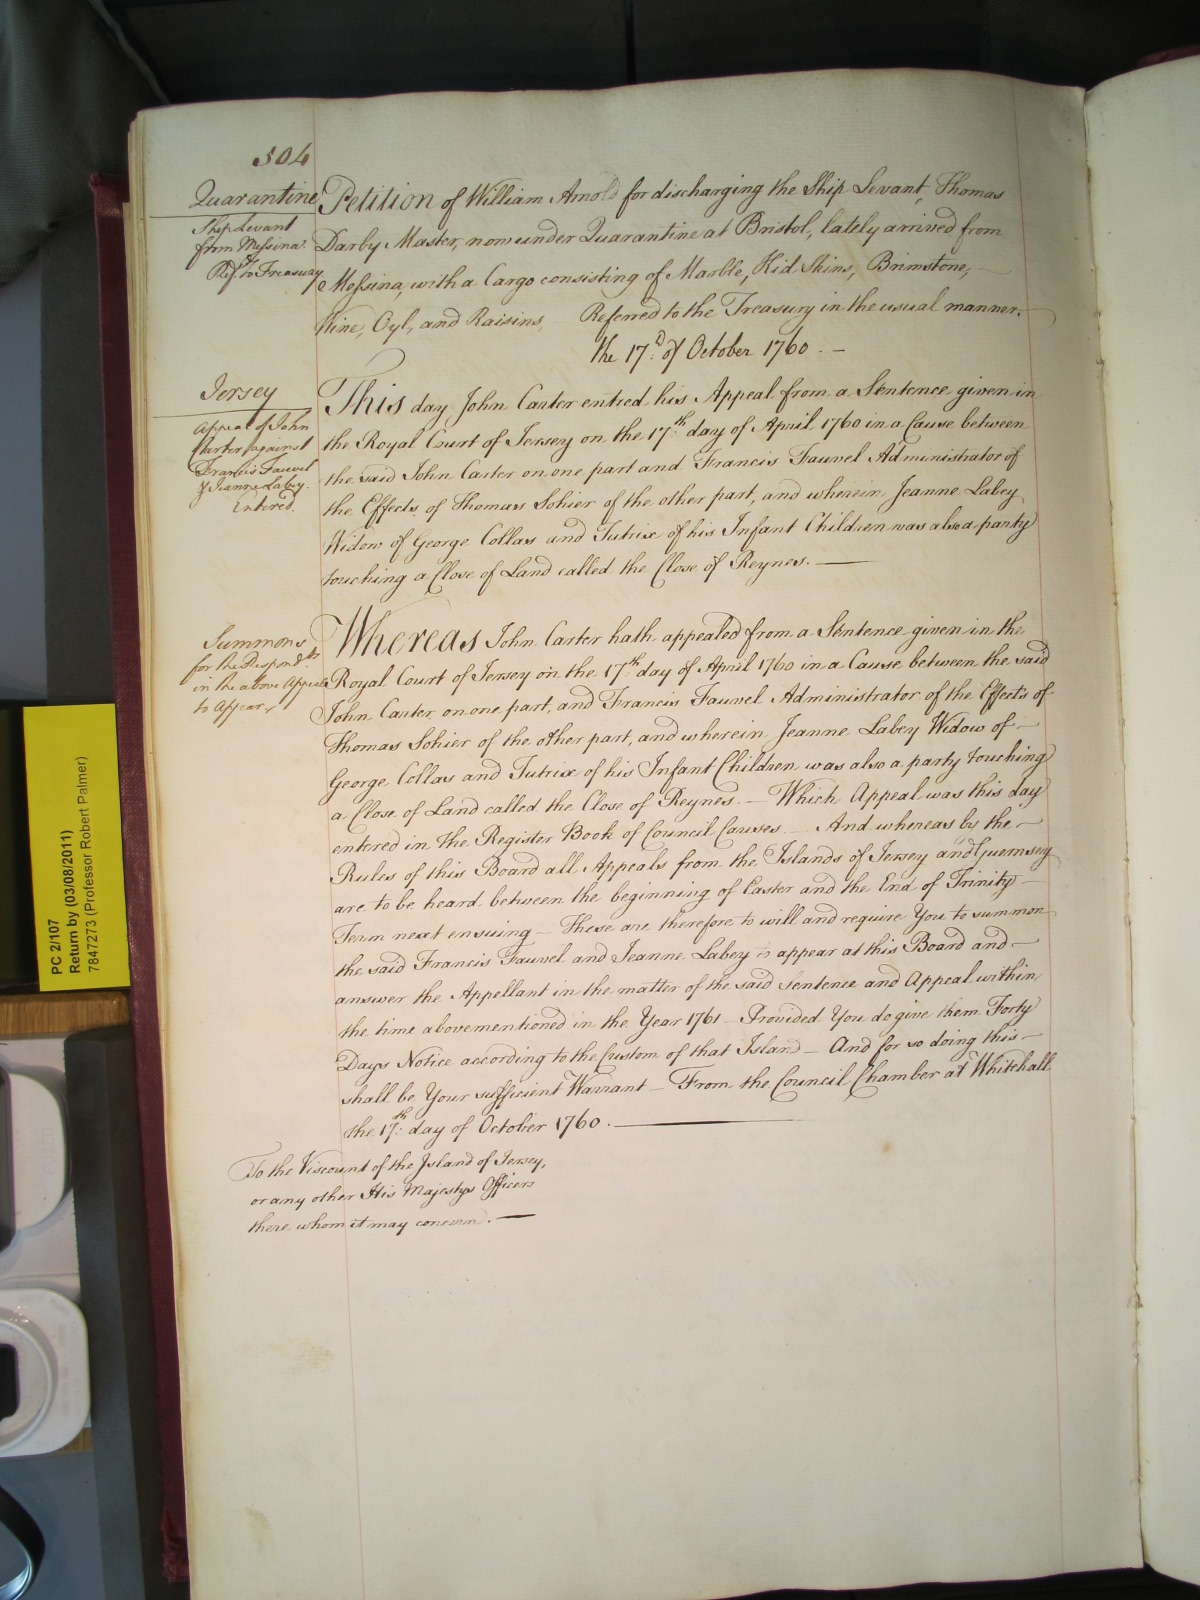 504
Quarantine
Ship Levant
from Messina
Refd to Treasury
Petition of William Arnold for discharging the Ship Levant, Thomas
Darby Master, now under Quarantine at Bristol, lately arrived from
Messina, with a Cargo consisting of Marble, Kid Skins, Brimstone, –
Wine, Oyl, and Raisins. Referred to the Treasury in the usual manner.
the 17.d of October 1760. –
Jersey
Appeal of John
Carter against
Francis Fauvel
& Jeanne Labey.
Entered.
This day John Carter entred his Appeal from a Sentence given in
the Royal Court of Jersey on the 17.th day of April 1760 in a Cause between
the said John Carter on one part and Francis Fauvel Administrator of
the Effects of Thomas Sohier of the other part, and wherein Jeanne Labey
Widow of George Collas and Tutrix of his Infant Children was also a party
touching a Close of Land called the Close of Reynes. —
Summons
for the Respondts
in the above Appeal
to Appear.
Whereas John Carter hath appealed from a Sentence given in the
Royal Court of Jersey on the 17.th day of April 1760 in a Cause between the said
John Carter on one part, and Francis Fauvel Administrator of the Effects of
Thomas Sohier of the other part, and wherein Jeanne Labey Widow of –
George Collas and Tutrix of his Infant Children was also a party touching
a Close of Land called the Close of Reynes. – Which Appeal was this day
entered in the Register Book of Council Causes. – And whereas by the –
Rules of this Board all Appeals from the Islands of Jersey and Guernsey
are to be heard between the beginning of Easter and the End of Trinity –
Term next ensuing – These are therefore to will and require You to summon
the said Francis Fauvel and Jeanne Labey to appear at this Board and –
answer the Appellant in the matter of the said Sentence and Appeal within
the time abovementioned in the Year 1761 – Provided You do give them Forty
Days Notice according to the Custom of that Island – And for so doing this –
shall be Your sufficient Warrant – From the Council Chamber at Whitehall
the 17.th day of October 1760. —
To the Viscount of the Island of Jersey,
or any other His Majestys Officers
there whom it may concern. —
PC 2/107
Return by (03/08/2011)
7847273 (Professor Robert Palmer)